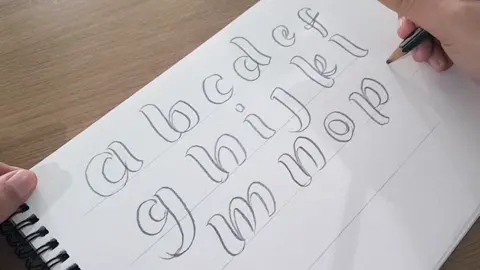 a b c d e f
g h i j k l
m n o p